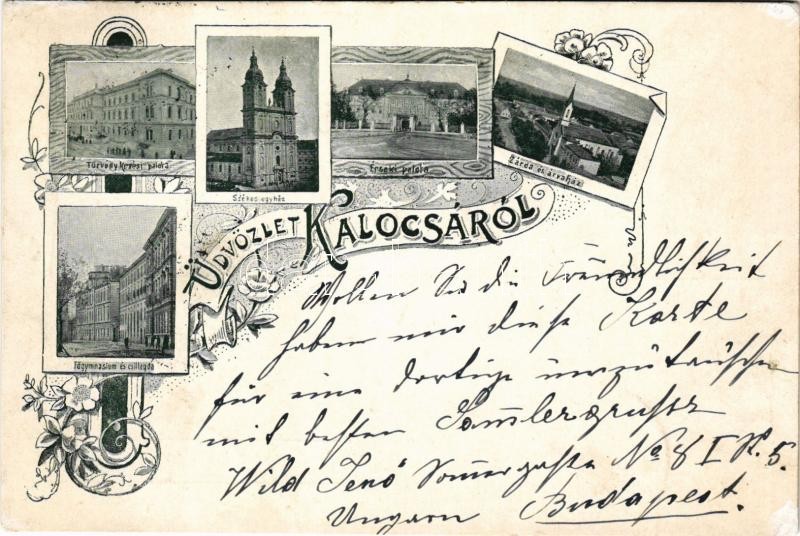 Törvénykezési palota
Székes egyház
Érseki palota
Zárda és árvaház
Főgymnasium és csillagda
ÜDVÖZLET KALOCSÁRÓL
Wollen Sie die Freundlichkeit
haben mir diese Karte
für eine dortige umzutauschen
mit besten Sammlergruss
Wild Jenő No 8 I St. 5.
Ungarn Budapest.